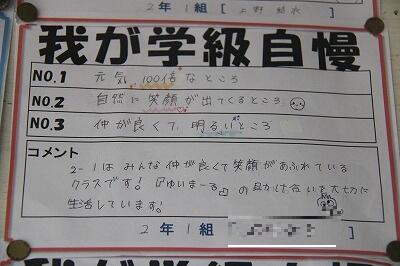 2年1組 [上野 結衣]
我が学級自慢
NO.1 元気100倍なところ
NO.2 自然に笑顔が出てくるところ
NO.3 仲が良くて、明るいところ
コメント
2-1はみんな仲が良くて笑顔があふれている
クラスです!『ゆいまーる』の助け合いを大切に
生活しています!
2年1組 [ ]
我が学級自慢